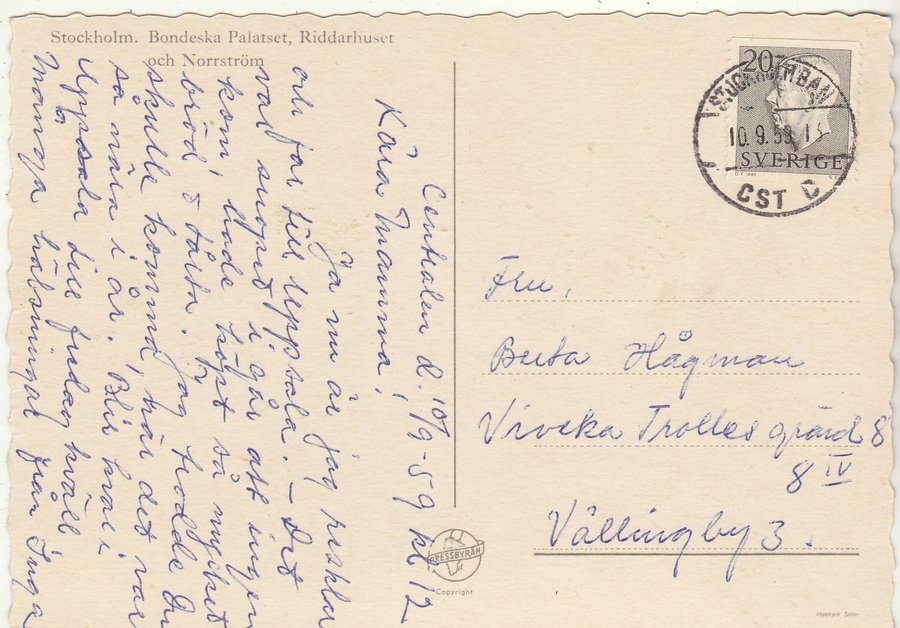 Stockholm. Bondeska Palatset, Riddarhuset
och Norrström
Centralen d. 10/9-59 kl 12
Kära Mamma!
Ja nu är jag
och far till Uppsala. – Det
var snopet i går att ingen
kom, hade köpt så mycket
bröd o tårta. Jag trodde Du
skulle komma, när det var
så nära i år. Blir kvar i
Uppsala till fredag kväll
Många hälsningar från Inga
20
STOCKHOLM BAN
10.9.59 13
SVERIGE
CST C
Fru,
Berta Hågman
Viveka Trolles gränd 8
8 IV
Vällingby 3.
PRESSBYRÅN
Copyright